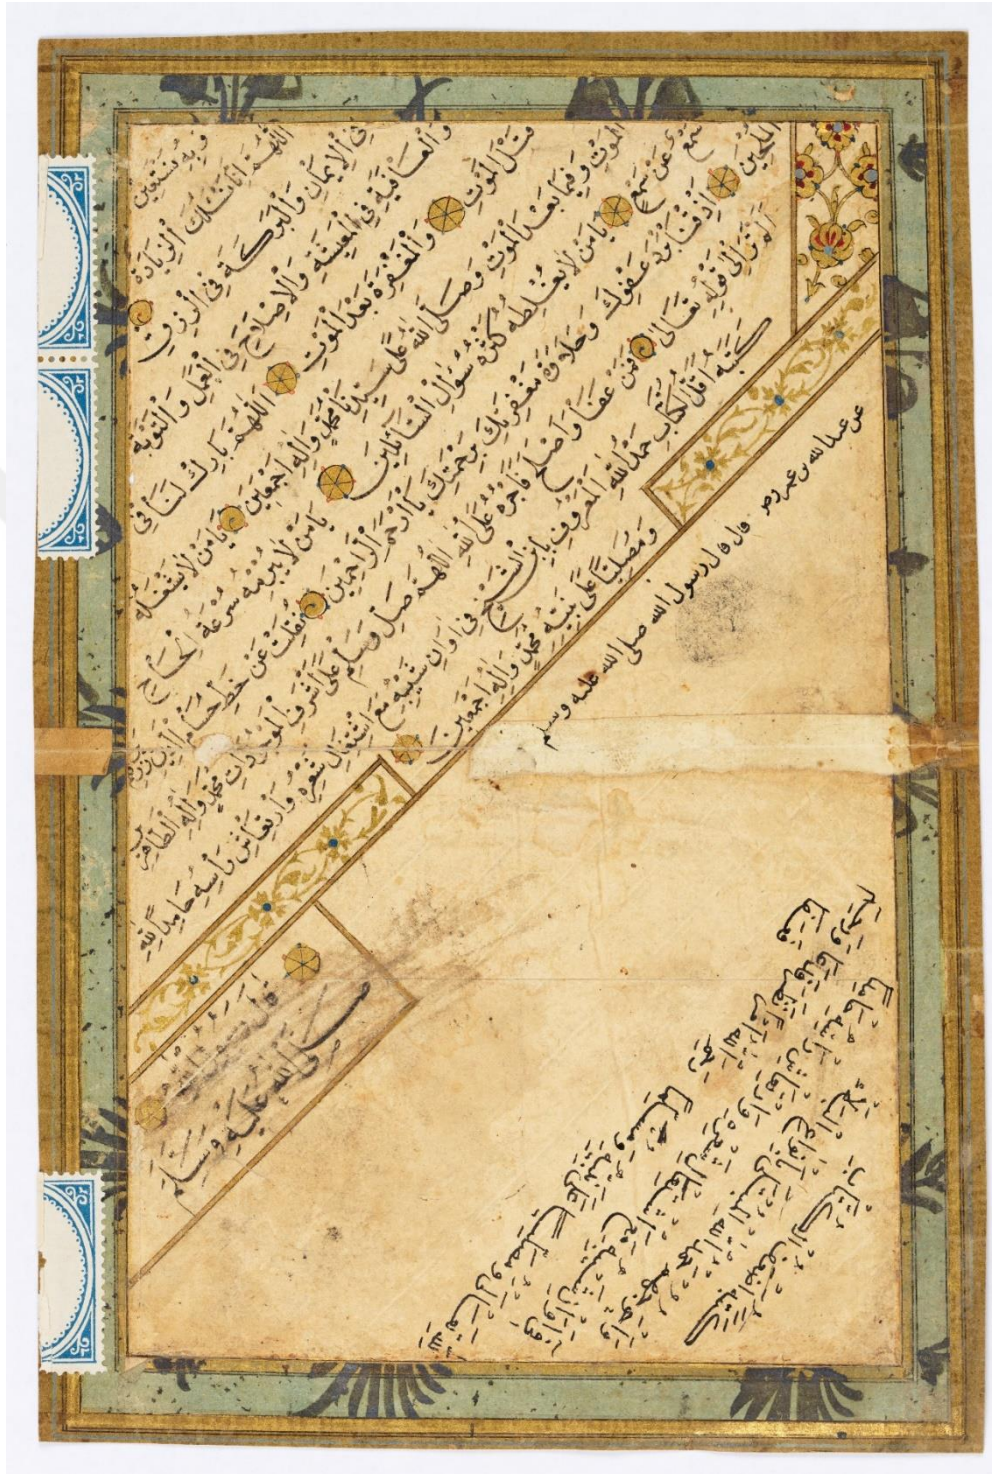 وبه نستعين
اللهم انا نسئلك الزيادة
في الايمان والبركة في الرزق
والعافية في المعيشة والاصلاح في العمل والتوبة
قبل الموت والمغفرة بعد الموت اللهم بارك لنا في
الموت وفيما بعد الموت وصلى الله على سيدنا محمد واله اجمعين يا من لا يشغله
سمع عن سمع ويا من لا يغلطه كثرة سؤال السائلين يا من لا يبرمه سرعة الحاح
الملحين اذقنا برد عفوك وحلاوة مغفرتك برحمتك يا ارحم الراحمين نقلت عن خط حسام
الم تر الى قوله تعالى فمن عفا واصلح فاجره على الله اللهم صل وسلم على اشرف الموجودات محمد واله الطاهرين
كتبه اقل الكتاب حمد الله المعروف بابن الشيخ في اوان شيبه مع اشتغال شعره وارتعاش رأسه حامدا لله
ومصليا على نبيه محمد واله اجمعين
عن عبدالله بن عمر رضى قال قال رسول الله صلى الله عليه وسلم
قال رسول الله
صلى الله عليه وسلم
كتبه اضعف الكتاب
حمد الله المبتلى بانواع البلاء
اوان شيبه مع اشتعال شعره وارتعاش رأسه حامدا
لله تعالى ومصليا على نبيه ومسلما رحم الله